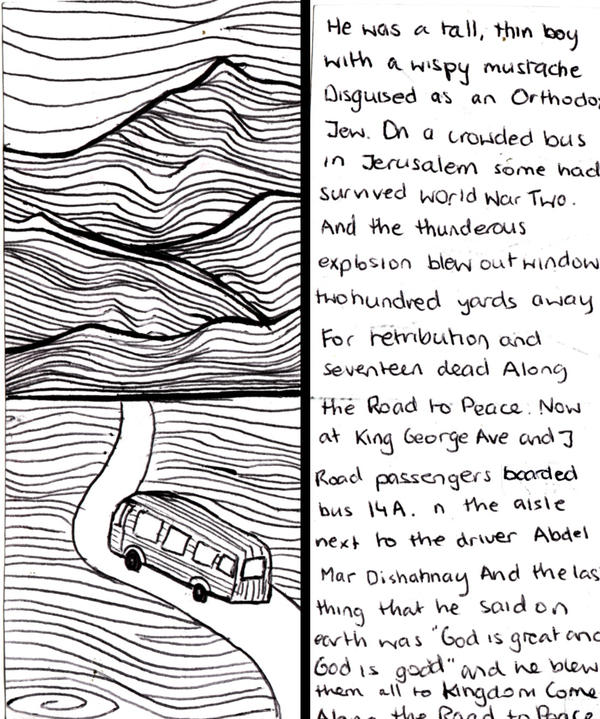 He was a tall, thin boy
with a wispy mustache
Disguised as an Orthodo
Jew. On a crowded bus
in Jerusalem some had
survived World War Two.
And the thunderous
explosion blew out window
two hundred yards away
For retribution and
seventeen dead Along
the Road to Peace. Now
at King George Ave and J
Road passengers boarded
bus 14A. n the aisle
next to the driver Abdel
Mar Dishahnay And the las
thing that he said on
earth was "God is great and
God is good" and he blew
them all to Kingdom Come
Along the Road to Peace